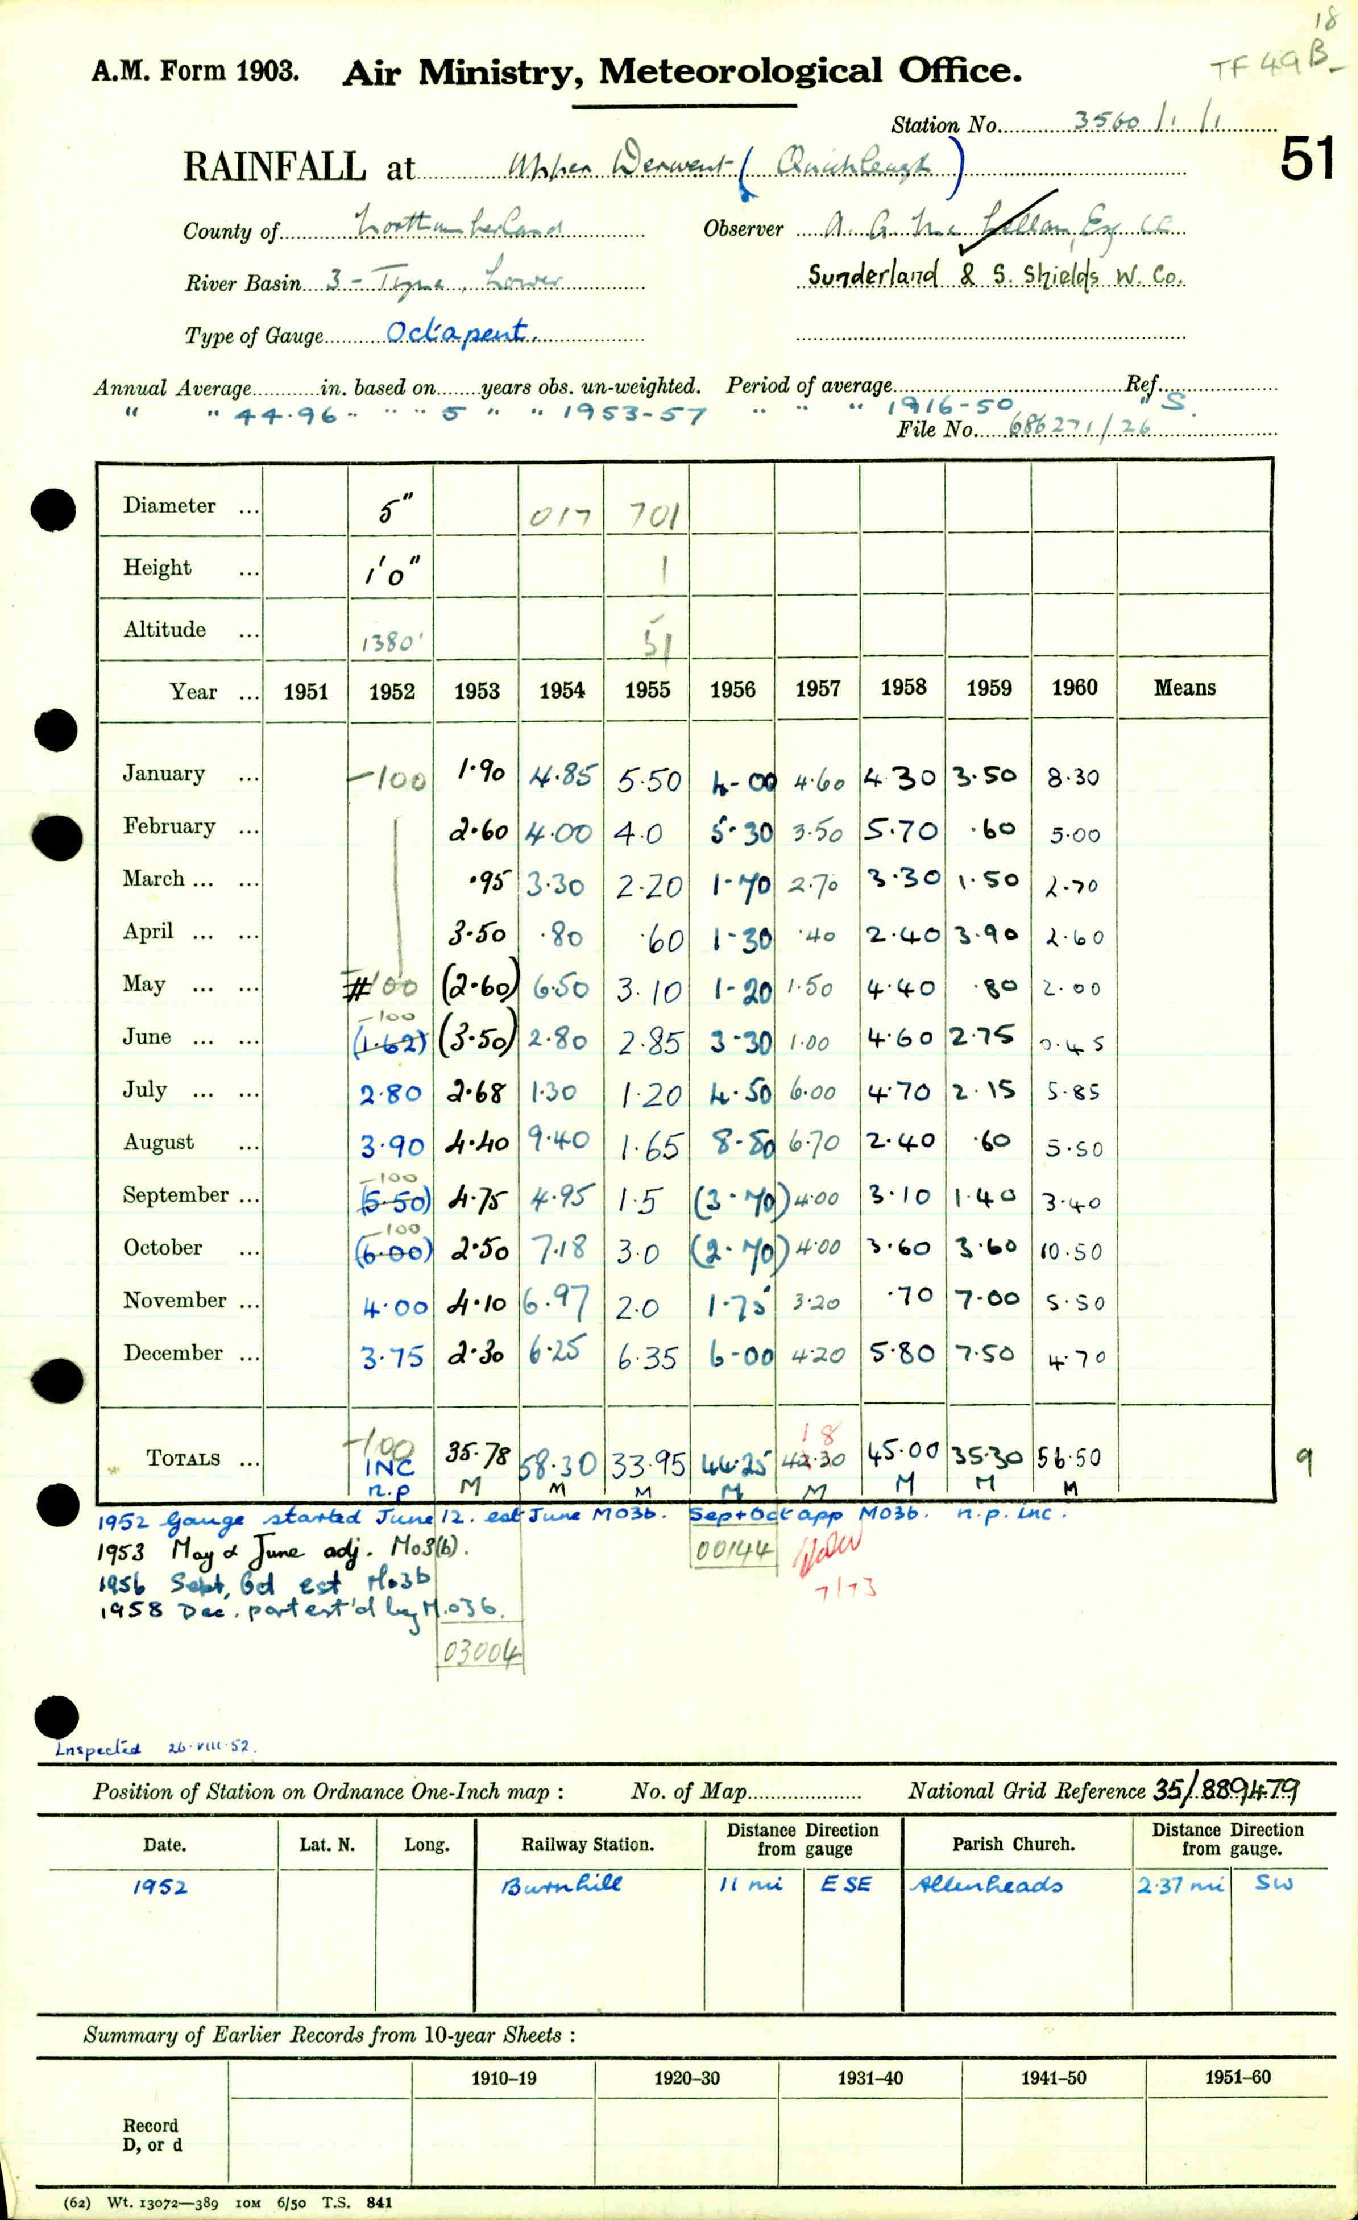 18
TF 49B
A.M. Form 1903. Air Ministry, Meteorological Office.
Station No. 3560/1/1
51
RAINFALL at Upper Derwent (Quickleugh)
County of Northumberland Observer A. G. Mc Lellan, Esq
River Basin 3 - Tyne, Lower Sunderland & S. Shields W. Co.
Type of Gauge Octapent.
Annual Average in. based on years obs. un-weighted. Period of average Ref.
" " 44.96 " " " 5 " " 1953-57 " " " 1916-50 " S.
File No. 686271/26
Diameter ... 5" 017 701
Height ... 1'0" 1
Altitude ... 1380' 51
Year ... 1951 1952 1953 1954 1955 1956 1957 1958 1959 1960 Means
January ... -100 1.90 4.85 5.50 4-00 4.60 4.30 3.50 8.30
February ... 2.60 4.00 4.0 5.30 3.50 5.70 .60 5.00
March ... ... .95 3.30 2.20 1-70 2.70 3.30 1.50 2.70
April ... ... 3.50 .80 .60 1-30 .40 2.40 3.90 2.60
May ... ... -100 (2.60) 6.50 3.10 1-20 1.50 4.40 .80 2.00
-100
June ... ... (1.62) (3.50) 2.80 2.85 3-30 1.00 4.60 2.75 0.45
July ... ... 2.80 2.68 1.30 1.20 4.50 6.00 4.70 2.15 5.85
August ... 3.90 4.40 9.40 1.65 8-80 6.70 2.40 .60 5.50
-100
September ... (5.50) 4.75 4.95 1.5 (3.70) 4.00 3.10 1.40 3.40
-100
October ... (6.00) 2.50 7.18 3.0 (2.70) 4.00 3.60 3.60 10.50
November ... 4.00 4.10 6.97 2.0 1.75 3.20 .70 7.00 5.50
December ... 3.75 2.30 6.25 6.35 6-00 4.20 5.80 7.50 4.70
18
Totals ... -100 35.78 58.30 33.95 44.25 42.30 45.00 35.30 56.50 9
INC
n.p M M M M M M M M
1952 Gauge started June 12. est June M03b. Sep+Oct app M03b. n.p. inc.
1953 May & June adj. M03(b). 00144
1956 Sept, Oct est M03b 7/73
1958 Dec. part est'd by M.03b.
03004
Inspected 26.VIII.52.
Position of Station on Ordnance One-Inch map : No. of Map National Grid Reference 35/889479
Date. Lat. N. Long. Railway Station. Distance from Direction gauge Parish Church. Distance from Direction gauge.
1952 Burnhill 11 mi ESE Allenheads 2.37 mi SW
Summary of Earlier Records from 10-year Sheets :
1910–19 1920–30 1931–40 1941–50 1951–60
Record
D, or d
(62) Wt. 13072—389 10M 6/50 T.S. 841